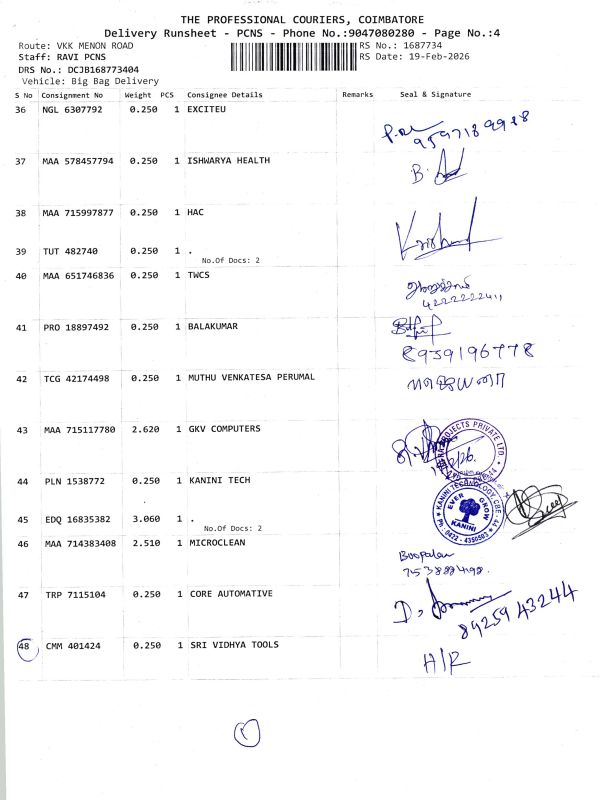 THE PROFESSIONAL COURIERS, COIMBATORE
Delivery Runsheet - PCNS - Phone No.:9047080280 - Page No.:4
Route: VKK MENON ROAD RS No.: 1687734
Staff: RAVI PCNS RS Date: 19-Feb-2026
DRS No.: DCJB168773404
Vehicle: Big Bag Delivery
S No Consignment No Weight PCS Consignee Details Remarks Seal & Signature
36 NGL 6307792 0.250 1 EXCITEU
9597189988
37 MAA 578457794 0.250 1 ISHWARYA HEALTH
B.
38 MAA 715997877 0.250 1 HAC
39 TUT 482740 0.250 1 .
No.Of Docs: 2
40 MAA 651746836 0.250 1 TWCS
41 PRO 18897492 0.250 1 BALAKUMAR
8959196778
42 TCG 42174498 0.250 1 MUTHU VENKATESA PERUMAL
43 MAA 715117780 2.620 1 GKV COMPUTERS
PROJECTS PRIVATE LTD.
44 PLN 1538772 0.250 1 KANINI TECH
KANINI TECHNOLOGY, CBE - 44
EVER GROW
KANINI
Ph: 0422 - 4350503
45 EDQ 16835382 3.060 1 .
No.Of Docs: 2
46 MAA 714383408 2.510 1 MICROCLEAN
Boopalan
47 TRP 7115104 0.250 1 CORE AUTOMATIVE
D.
8925943244
48 CMM 401424 0.250 1 SRI VIDHYA TOOLS
H/R